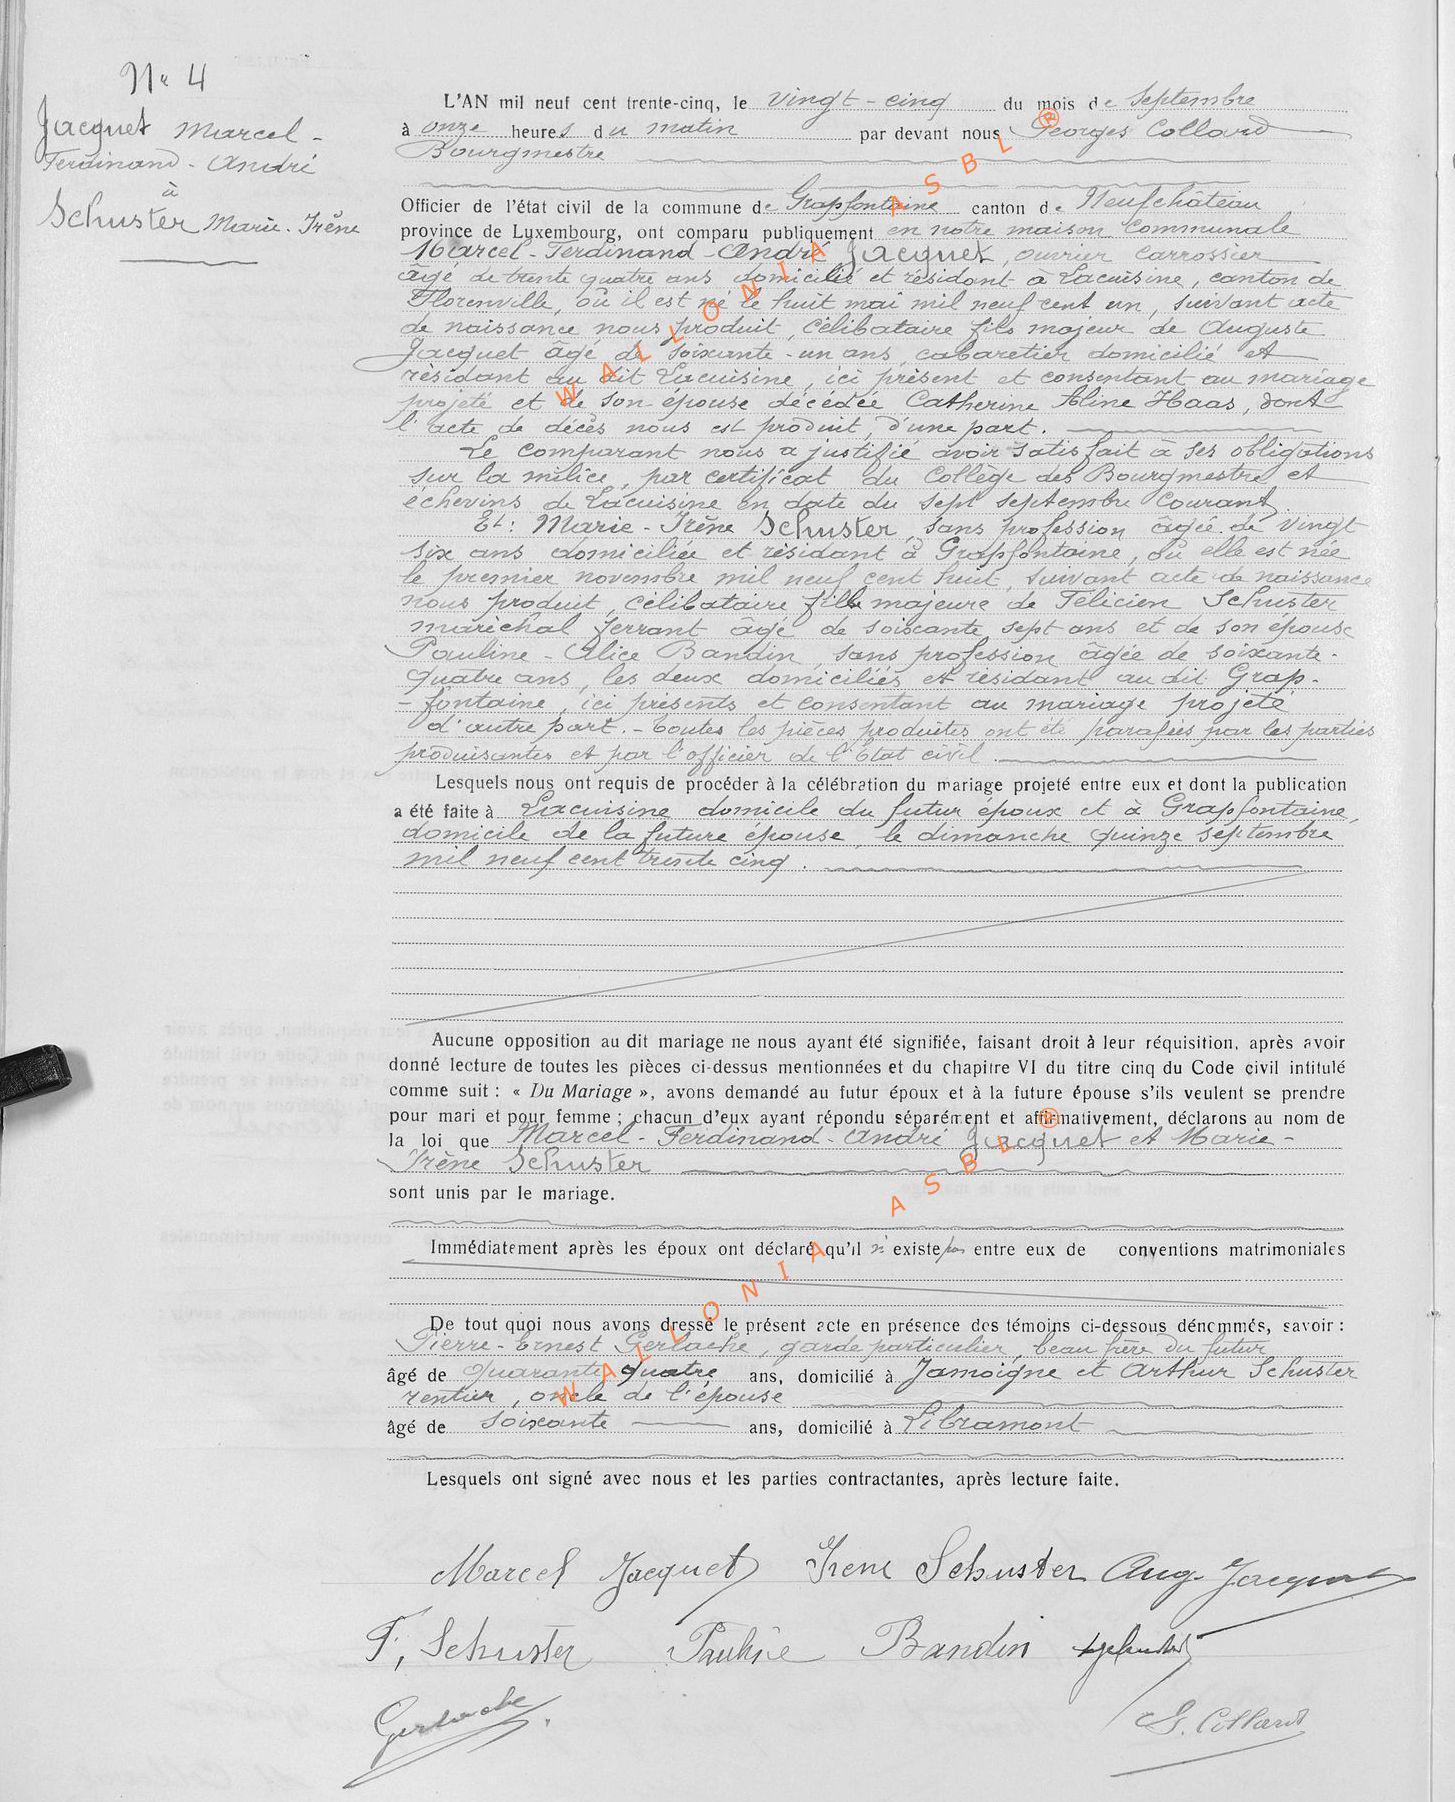 Nº 4
Jacquet Marcel -
Ferdinand - André
à
Schuster Marie - Irène
L'AN mil neuf cent trente-cinq, le vingt - cinq du mois de Septembre
à onze heures du matin par devant nous Georges Collard
Bourgmestre
Officier de l'état civil de la commune de Grapfontaine canton de Neufchâteau
province de Luxembourg, ont comparu publiquement en notre maison Communale
Marcel - Ferdinand - André Jacquet, ouvrier carrossier
âgé de trente quatre ans domicilié et résidant à Lacuisine, canton de
Florenville, où il est né le huit mai mil neuf cent un, suivant acte
de naissance nous produit, célibataire fils majeur de Auguste
Jacquet âgé de soixante - un ans cabaretier domicilié et
résidant au dit Lacuisine, ici présent et consentant au mariage
projeté et de son épouse décédée Catherine Aline Haas, dont
l'acte de décès nous est produit, d'une part.
Le comparant nous a justifié avoir satisfait à ses obligations
sur la milice, par certificat du Collège des Bourgmestre et
échevins de Lacuisine en date du sept septembre courant.
Et : Marie - Irène Schuster, sans profession âgée de vingt
six ans domiciliée et résidant à Grapfontaine, où elle est née
le premier novembre mil neuf cent huit, suivant acte de naissance
nous produit, célibataire fille majeure de Félicien Schuster
maréchal ferrant âgé de soixante sept ans et de son épouse
Pauline - Alice Bandin, sans profession âgée de soixante -
quatre ans, les deux domiciliés et résidant au dit Grap-
- fontaine, ici présents et consentant au mariage projeté
d'autre part. - Toutes les pièces produites ont été parafées par les parties
produisantes et par l'officier de l'Etat civil.
Lesquels nous ont requis de procéder à la célébration du mariage projeté entre eux et dont la publication
a été faite à Lacuisine domicile du futur époux et à Grapfontaine,
domicile de la future épouse, le dimanche quinze septembre
mil neuf cent trente cinq.
Aucune opposition au dit mariage ne nous ayant été signifiée, faisant droit à leur réquisition, après avoir
donné lecture de toutes les pièces ci-dessus mentionnées et du chapitre VI du titre cinq du Code civil intitulé
comme suit : « Du Mariage », avons demandé au futur époux et à la future épouse s'ils veulent se prendre
pour mari et pour femme ; chacun d'eux ayant répondu séparément et affirmativement, déclarons au nom de
la loi que Marcel - Ferdinand - André Jacquet et Marie -
Irène Schuster
sont unis par le mariage.
Immédiatement après les époux ont déclaré qu'il n'existe pas entre eux de conventions matrimoniales
De tout quoi nous avons dressé le présent acte en présence des témoins ci-dessous dénommés, savoir :
Pierre - Ernest Gerlache, garde particulier, beau frère du futur
âgé de quarante quatre ans, domicilié à Jamoigne et Arthur Schuster
rentier, oncle de l'épouse
âgé de soixante ans, domicilié à Libramont
Lesquels ont signé avec nous et les parties contractantes, après lecture faite.
Marcel Jacquet Irene Schuster Aug. Jacquet
F. Schuster Pauline Bandin
Gerlache G. Collard
WALLONIA ASBL ®
WALLONIA ASBL ®